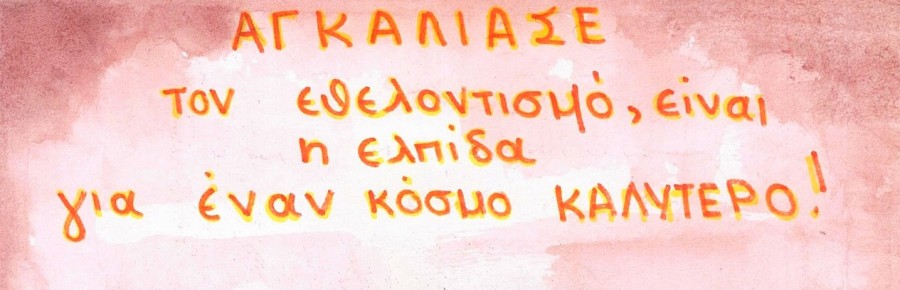 ΑΓΚΑΛΙΑΣΕ
τον εθελοντισμό, είναι
η ελπίδα
για έναν κόσμο ΚΑΛΥΤΕΡΟ!